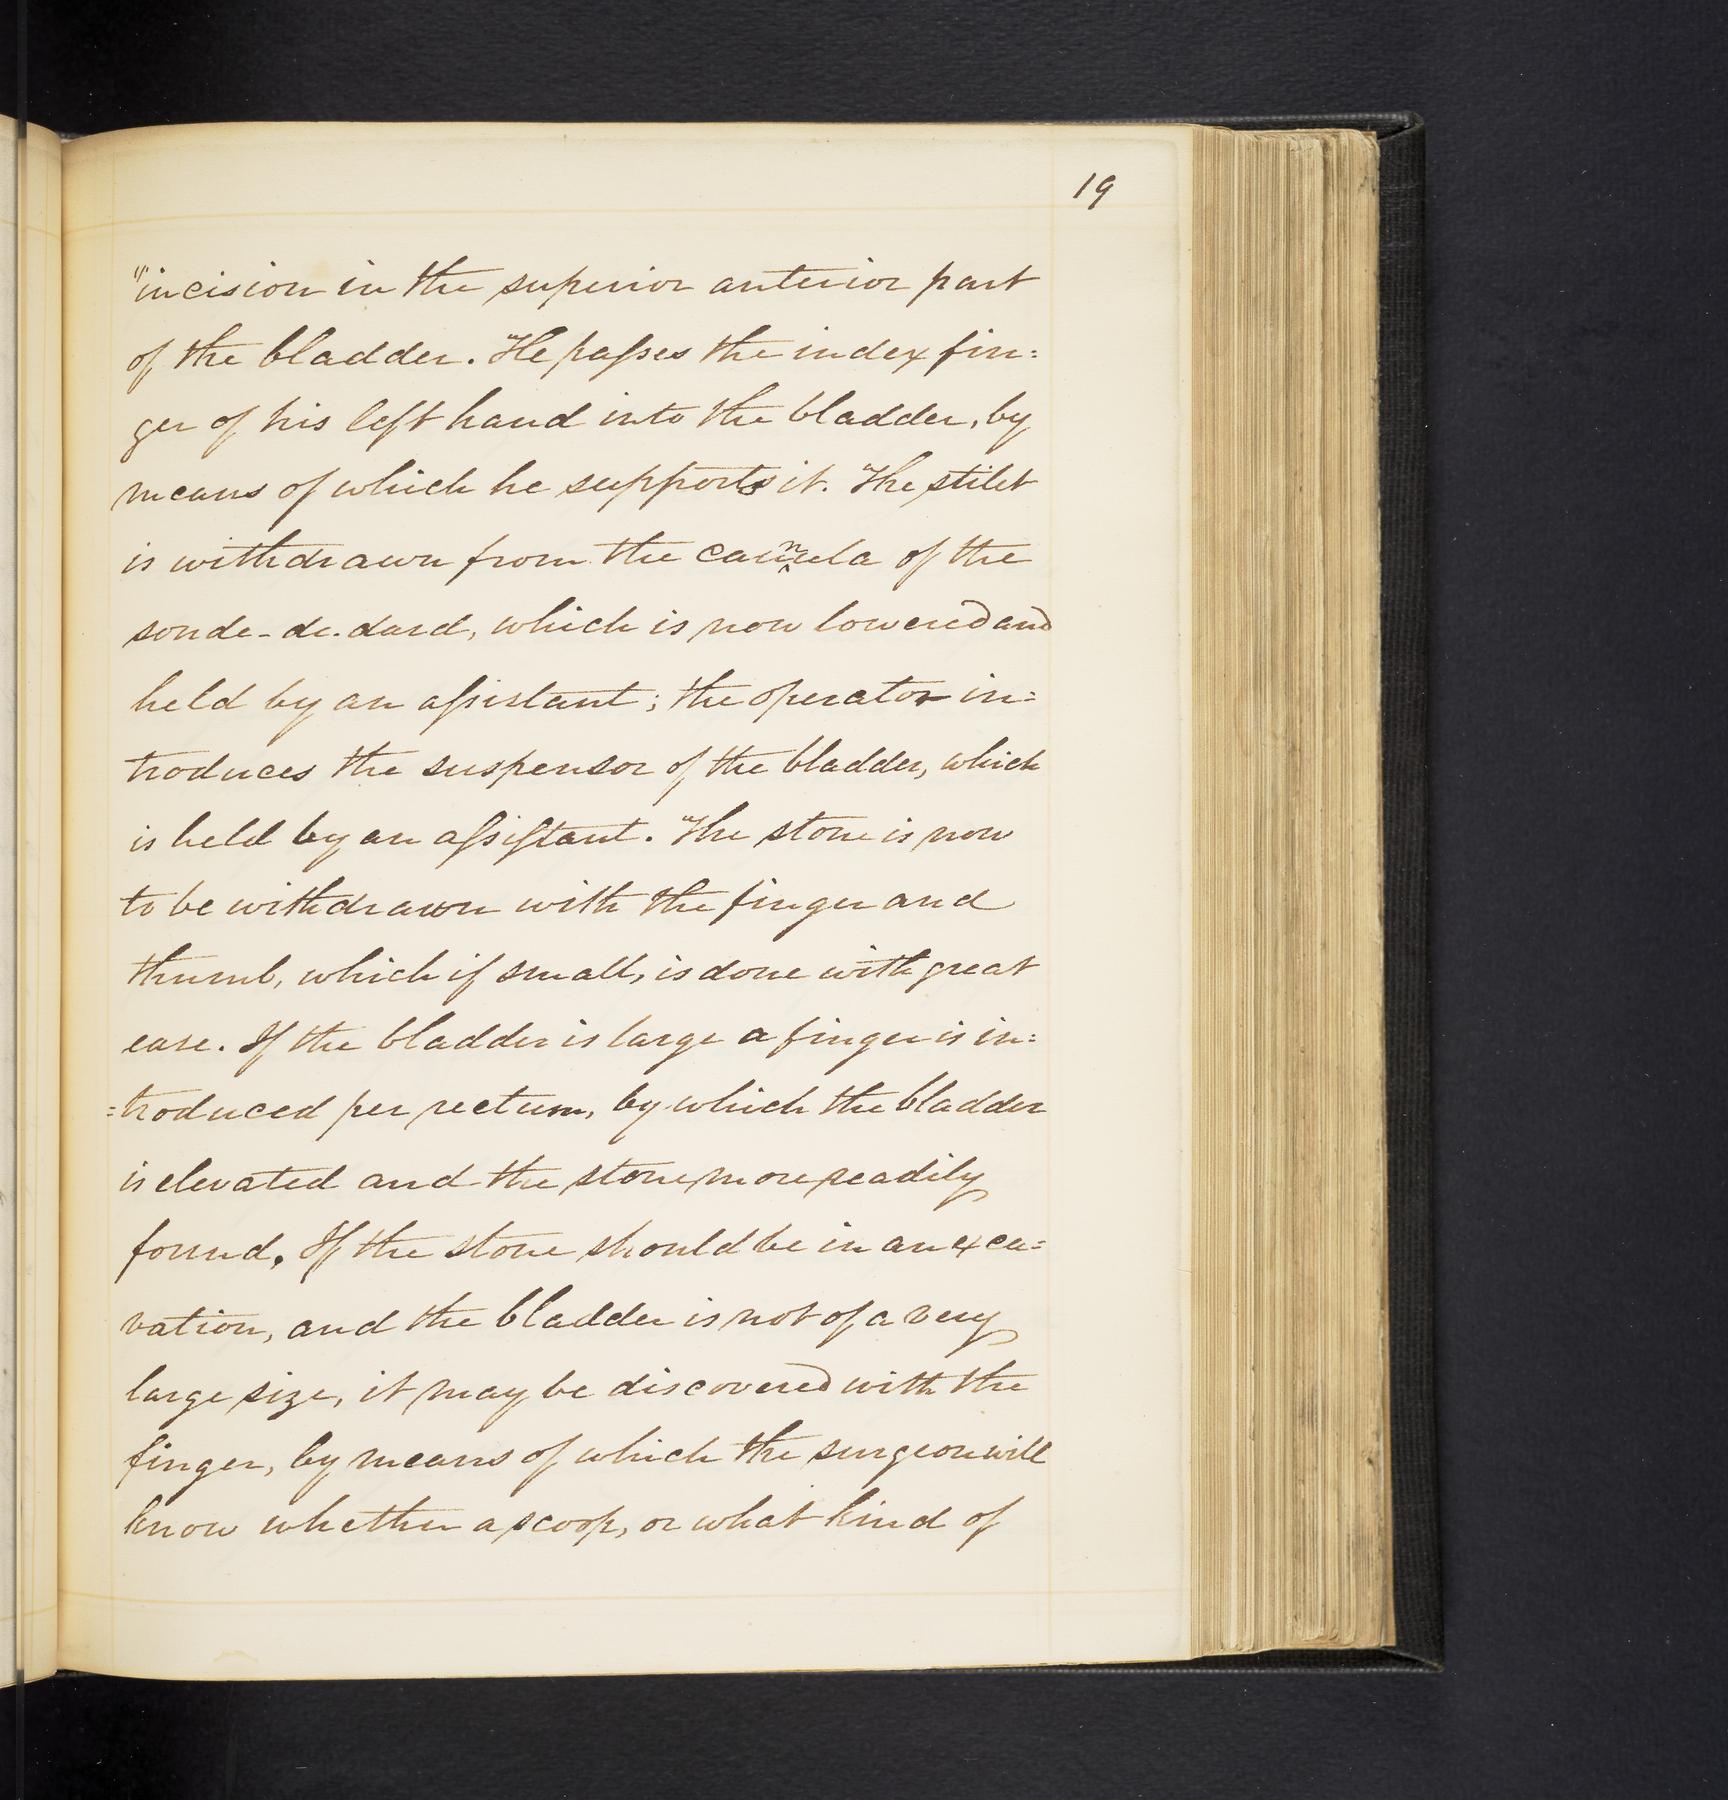 19
"incision in the superior anterior part
of the bladder. He paſses the index fin=
ger of his left hand into the bladder, by
means of which he supports it. The stilet
is withdrawn from the cannula of the
sonde-de-dard, which is now lowered and
held by an aſsistant; the operator in=
troduces the suspensor of the bladder, which
is held by an aſsiſtant. The stone is now
to be withdrawn with the finger and
thumb, which if small, is done with great
ease. If the bladder is large a finger is in=
=troduced per rectum, by which the bladder
is elevated and the stone more readily
found. If the stone should be in an exca=
vation, and the bladder is not of a very
large size, it may be discovered with the
finger, by means of which the surgeon will
know whether a scoop, or what kind of